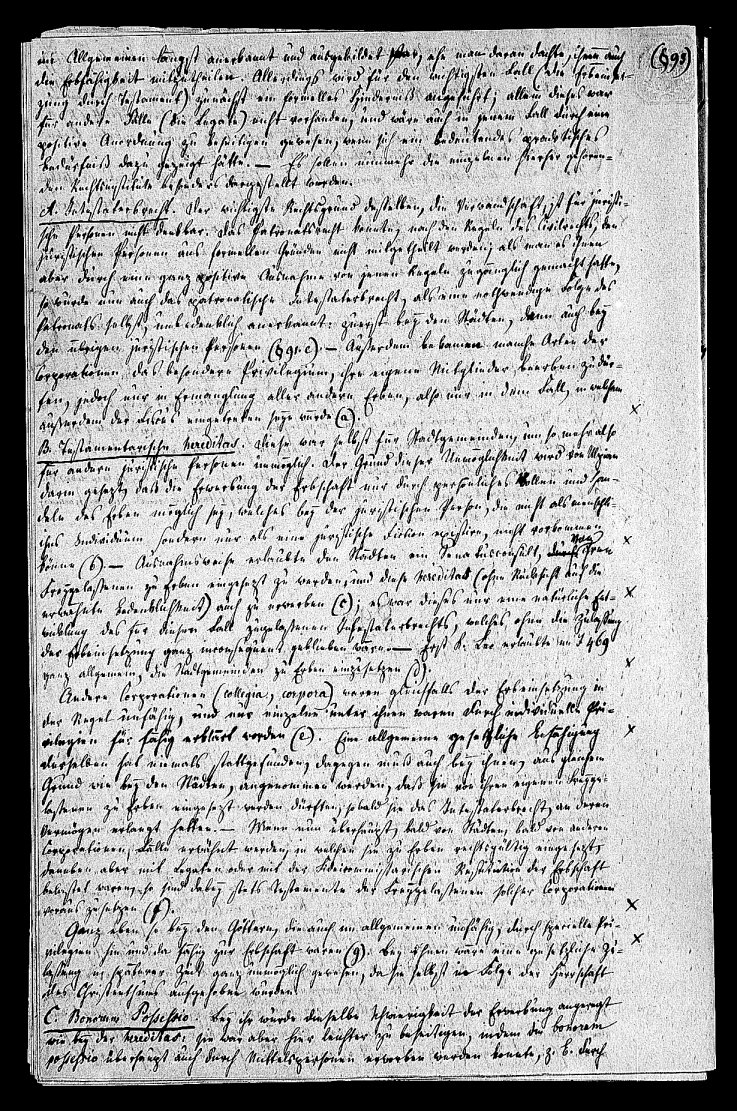 im Allgemeinen längst anerkannt und ausgebildet war, ehe man daran dachte, ihnen auch (§93)
die Erbfähigkeit mitzutheilen. Allerdings wird für den wichtigsten Fall (die Erbeinset-
zung durch Testament) zunächst ein formelles Hinderniß angeführt; allein dieses war
für andere Fälle (die Legate) nicht vorhanden, und wäre auch in jenem Fall durch eine
positive Anordnung zu beseitigen gewesen, wenn sich ein bedeutendes praktisches
Bedürfniß dazu gezeigt hätte. — Es sollen nunmehr die einzelnen hierher gehören-
den Rechtsinstitute besonders dargestellt werden.
A. Intestaterbrecht. Der wichtigste Rechtsgrund desselben, die Verwandschaft, ist für juristi-
sche Personen nicht denkbar. Das Patronatsrecht konnte, nach den Regeln des Civilrechts, den
juristischen Personen aus formellen Gründen nicht mitgetheilt werden; als man es ihnen
aber durch eine ganz positive Ausnahme von jenen Regeln zugänglich gemacht hatte,
so wurde nun auch das patronatische Intestaterbrecht, als eine nothwendige Folge des
Patronats selbst, unbedenklich anerkannt: zuerst bey den Städten, dann auch bey
den übrigen juristischen Personen (§91.c). — Außerdem bekamen manche Arten der
Corporationen das besondere Privilegium, ihre eigenen Mitglieder beerben zu dür-
fen, jedoch nur in Ermanglung aller andern Erben, also nur in dem Fall, in welchem
außerdem der Fiscus eingetreten seyn würde (a).
B. Testamentarische hereditas. Diese war selbst für Stadtgemeinden, um so mehr also
für andere juristische Personen unmöglich. Der Grund dieser Unmöglichkeit wird von Ulpian
darin gesetzt, daß die Erwerbung der Erbschaft nur durch persönliches Wollen und Han-
deln des Erben möglich sey, welches bey der juristischen Person, die nicht als menschli-
ches Individuum sondern nur als eine juristische Fiction existire, nicht vorkommen
könne (b). — Ausnahmsweise erlaubte den Städten ein Senatusconsult, von ihren
Freygelassenen zu Erben eingesetzt zu werden, und diese hereditas (ohne Rücksicht auf die
erwähnte Bedenklichkeit) auch zu erwerben (c); es war dieses nur eine natürliche Ent-
wicklung des für diesen Fall zugelassenen Intestaterbrechts, welches ohne die Zulassung
der Erbeinsetzung ganz inconsequent geblieben wäre. — Erst K. Leo erlaubte im J 469
ganz allgemein, die Stadtgemeinden zu Erben einzusetzen
Andere Corporationen (collegia, corpora) waren gleichfalls der Erbeinsetzung in
der Regel unfähig, und nur einzelne unter ihnen waren durch individuelle Pri-
vilegien für fähig erklärt worden (e). Eine allgemeine gesetzliche Befähigung
derselben hat niemals stattgefunden; dagegen muß auch bey ihnen, aus gleichem
Grund wie bey den Städten, angenommen werden, daß sie von ihren eigenen Freyge-
lassenen zu Erben eingesetzt werden durften, sobald sie das Intestaterbrecht an deren
Vermögen erlangt hatten. — Wenn nun überhaupt, bald von Städten, bald von anderen
Corporationen, Fälle erwähnt werden, in welchen sie zu Erben rechtsgültig eingesetzt,
daneben aber mit Legaten oder mit der fideicommissarischen Restitution der Erbschaft
belastet waren, so sind dabey stets Testamente der Freygelassenen solcher Corporationen
voraus zu setzen (f).
Ganz eben so bey den Göttern, die auch im allgemeinen unfähig, durch specielle Pri-
vilegien hie und da fähig zur Erbschaft waren (g). Bey ihnen wäre eine gesetzliche Zu-
lassung in späterer Zeit ganz unmöglich gewesen, da sie selbst in Folge der Herrschaft
des Christenthums aufgehoben wurden.
C. Bonorum Possessio. Bey ihr wurde dieselbe Schwierigkeit der Erwerbung angeregt
wie bey der hereditas; sie war aber hier leichter zu beseitigen, indem die bonorum
possessio überhaupt auch durch Mittelspersonen erworben werden konnte, z. B. durch